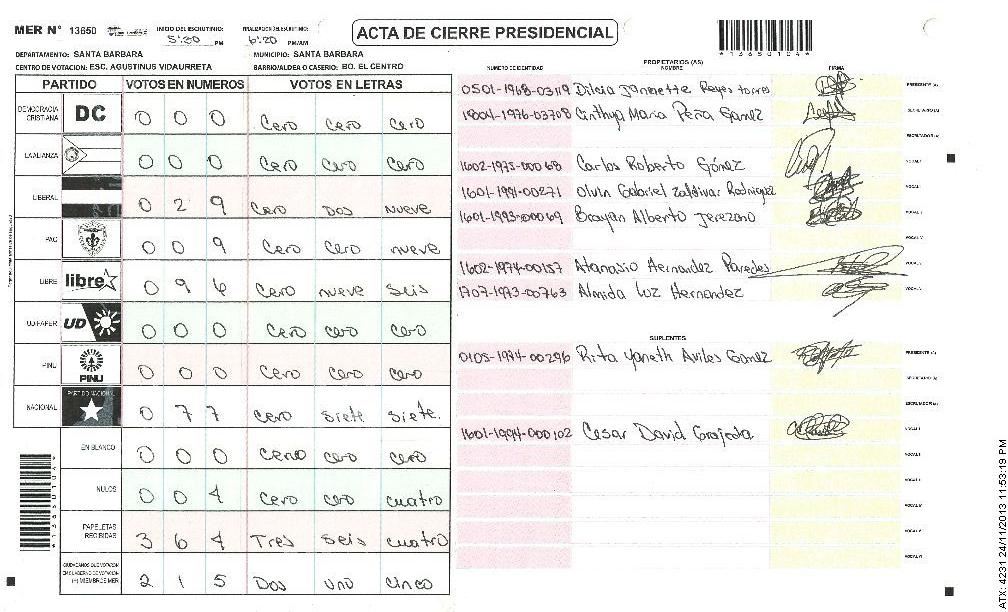 MER N° 13650 INICIO DEL ESCRUTINIO: 5:30 PM FINALIZACION DEL ESCRUTINIO: 6:20 PM/AM
ACTA DE CIERRE PRESIDENCIAL
*13650104*
DEPARTAMENTO: SANTA BARBARA MUNICIPIO: SANTA BARBARA
CENTRO DE VOTACION: ESC. AGUSTINUS VIDAURRETA BARRIO/ALDEA O CASERIO: BO. EL CENTRO
PARTIDO VOTOS EN NUMEROS VOTOS EN LETRAS
DEMOCRACIA CRISTIANA DC 0 0 0 Cero Cero Cero
LA ALIANZA 0 0 0 Cero Cero Cero
LIBERAL 0 2 9 Cero Dos nueve
PAC 0 0 9 Cero Cero nueve
LIBRE libre 0 9 6 Cero nueve seis
UD-FAPER UD 0 0 0 Cero Cero Cero
PINU PINU 0 0 0 Cero Cero Cero
NACIONAL PARTIDO NACIONAL 0 7 7 Cero siete siete.
EN BLANCO 0 0 0 Cero Cero Cero
NULOS 0 0 4 Cero Cero cuatro
PAPELETAS RECIBIDAS 3 6 4 Tres seis cuatro
CIUDADANOS QUE VOTARON EN CUADERNO DE VOTACION (+) MIEMBROS MER 2 1 5 Dos uno cinco
PROPIETARIOS (AS)
NUMERO DE IDENTIDAD NOMBRE FIRMA
0501-1968-03119 Dilcia Jannette Reyes torres PRESIDENTE (A)
1804-1976-03708 Cinthya Maria Peña Gamez SECRETARIO (A)
ESCRUTADOR (A)
1602-1975-00068 Carlos Roberto Gómez VOCAL I
1601-1991-00271 Olvin Gabriel Zaldivar Rodriguez
1601-1993-00069 Brayan Alberto Jerezano
1602-1974-00157 Atanasio Hernandez Paredes
1707-1973-00763 Almida Luz Hernandez
SUPLENTES
0105-1974-00296 Rita Yaneth Aviles Gomez PRESIDENTE (A)
SECRETARIO (A)
ESCRUTADOR (A)
1601-1994-000102 Cesar David Grajeda VOCAL I
ATX: 4231 24/11/2013 11:53:19 PM